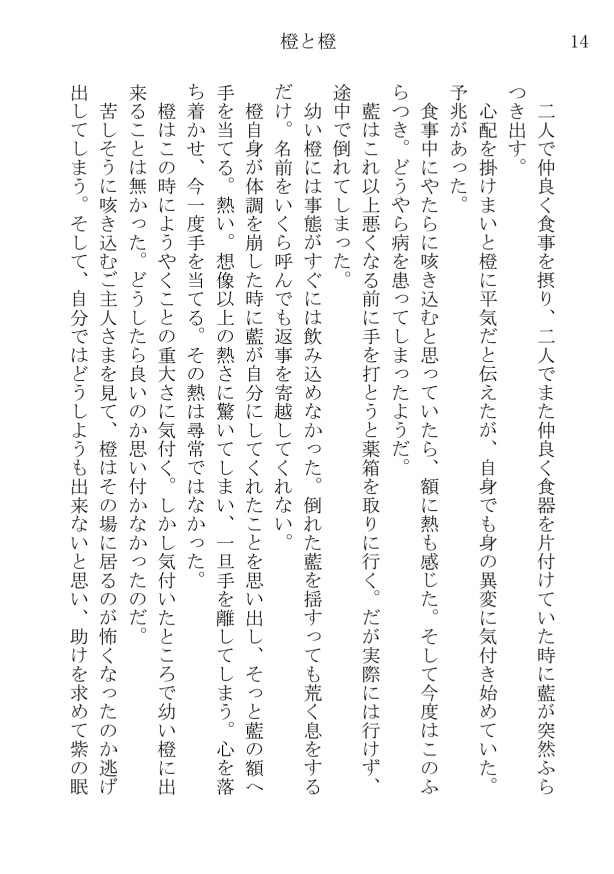 橙と橙
14
　二人で仲良く食事を摂り、二人でまた仲良く食器を片付けていた時に藍が突然ふら
つき出す。
　心配を掛けまいと橙に平気だと伝えたが、自身でも身の異変に気付き始めていた。
予兆があった。
　食事中にやたらに咳き込むと思っていたら、額に熱も感じた。そして今度はこのふ
らつき。どうやら病を患ってしまったようだ。
　藍はこれ以上悪くなる前に手を打とうと薬箱を取りに行く。だが実際には行けず、
途中で倒れてしまった。
　幼い橙には事態がすぐには飲み込めなかった。倒れた藍を揺すっても荒く息をする
だけ。名前をいくら呼んでも返事を寄越してくれない。
　橙自身が体調を崩した時に藍が自分にしてくれたことを思い出し、そっと藍の額へ
手を当てる。熱い。想像以上の熱さに驚いてしまい、一旦手を離してしまう。心を落
ち着かせ、今一度手を当てる。その熱は尋常ではなかった。
　橙はこの時にようやくことの重大さに気付く。しかし気付いたところで幼い橙に出
来ることは無かった。どうしたら良いのか思い付かなかったのだ。
　苦しそうに咳き込むご主人さまを見て、橙はその場に居るのが怖くなったのか逃げ
出してしまう。そして、自分ではどうしようも出来ないと思い、助けを求めて紫の眠